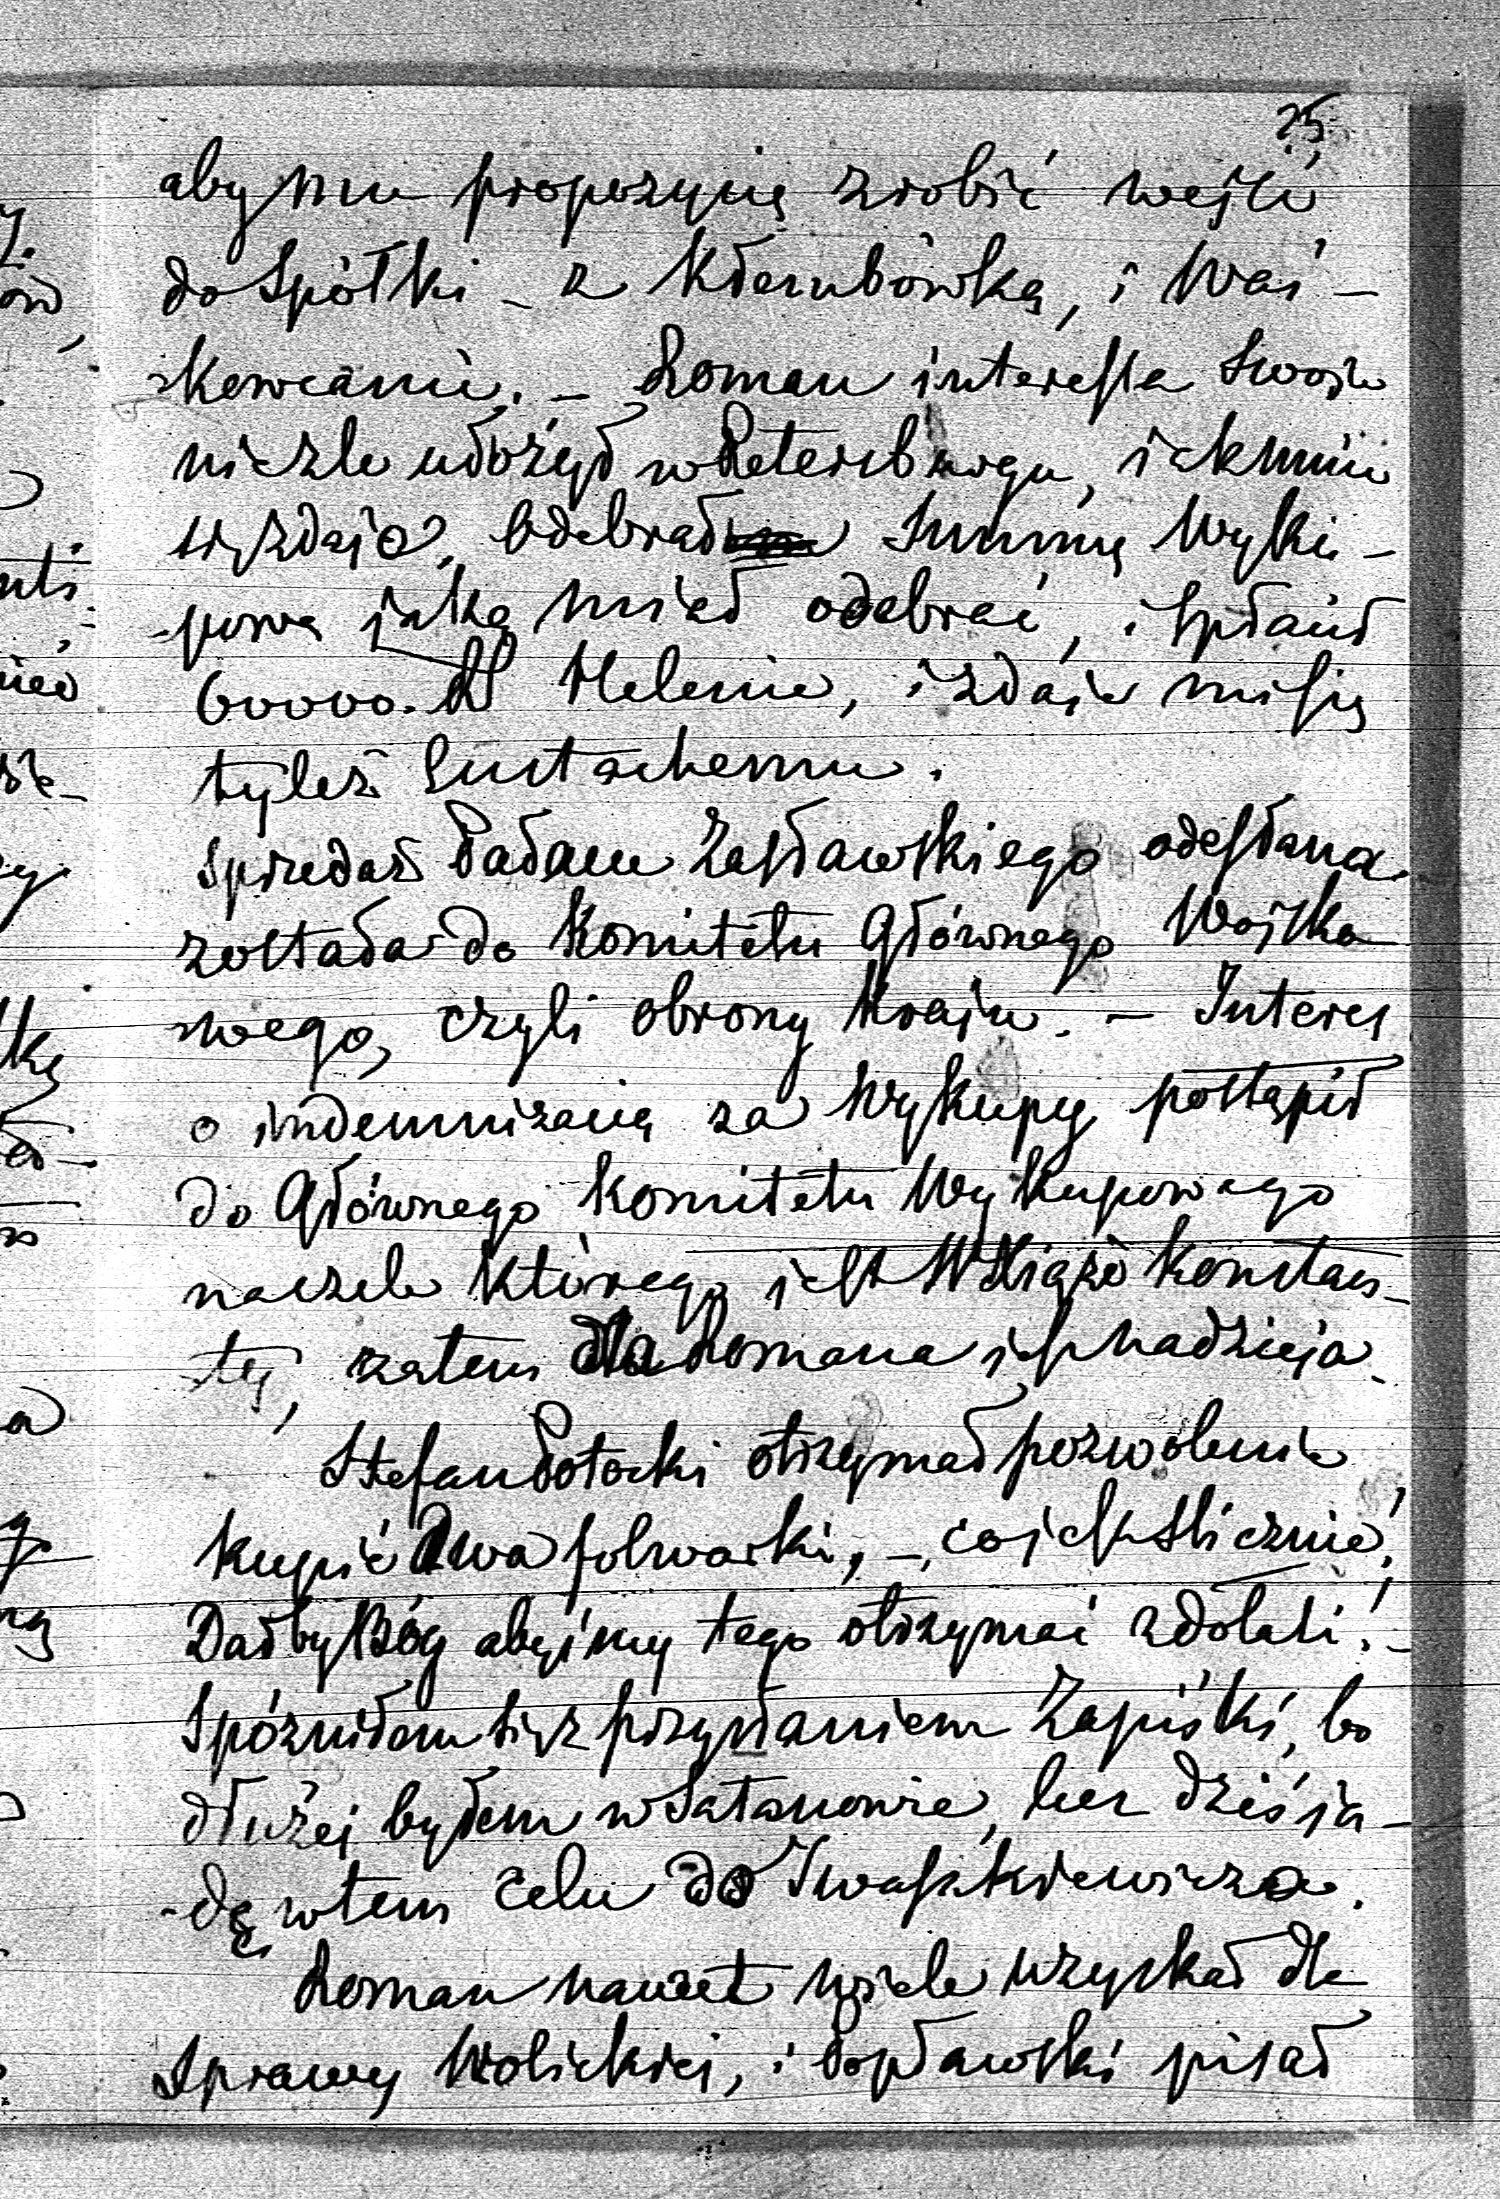 25
aby mu propozycię zrobić wejść
do Spółki – z Kłerubówką, i Waś –
kowcami. – Roman interessa swoje
nieźle ułożył w Petersburgu, i
się zdaje, odebrał Summę Wyku –
– pową jaką miał odebrać, i spłacił
60000. Helenie, i zdaje mi się
tyleż Eustachemu.
Sprzedaż Pałacu Zasławskiego odesłana
została do Komitetu Głównego Wojsko
wego, czyli obrony Kraju. – Interes
o indemnizacią za Wykupy postąpił
do Głównego Komitetu Wykupowego
na czele którego jest W Xiąże Konstan –
ty, zatem dla Romana jest nadzieja.
Stefan Potocki otrzymał pozwolenie
kupić dwa folwarki, – co jest ślicznie!
Dałby Bóg abyśmy tego otrzymać zdołali! –
Spóźniłem się z przysłaniem Zapiśki, bo
dłużej byłem w Satanowie, lecz dziś ja –
– dę w tem celu do Iwaszkiewicza.
Roman nawet wiele uzyskał dla
Sprawy Wolickiej, i Popławski pisał